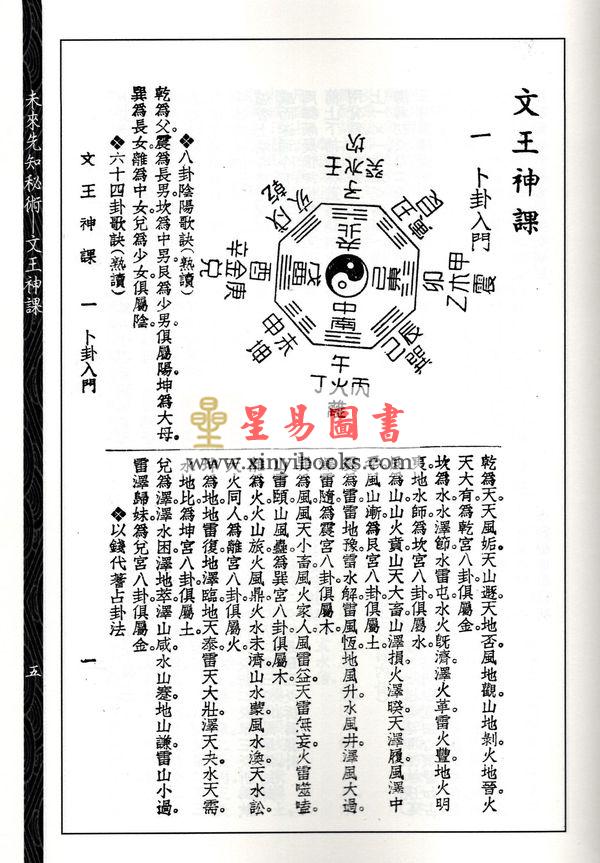 文王神課
一 卜卦入門
癸水壬
子
坎
丑艮寅
甲木乙
卯
震
辰巽巳
午
丙火丁
離
未坤申
庚金辛
酉
兌
戌乾亥
北
戊
東
己
南
中
西
❖八卦陰陽歌訣(熟讀)
乾為父。震為長男。坎為中男。艮為少男。俱屬陽。坤為大母。
巽為長女。離為中女。兌為少女。俱屬陰。
❖六十四卦歌訣(熟讀)
乾為天。天風姤。天山遯。天地否。風地觀。山地剝。火地晉。火
天大有。為乾宮八卦俱屬金。
坎為水。水澤節。水雷屯。水火既濟。澤火革。雷火豐。地火明
夷。地水師。為坎宮八卦俱屬水。
艮為山。山火賁。山天大畜。山澤損。火澤睽。天澤履。風澤中
孚。風山漸。為艮宮八卦俱屬土。
震為雷。雷地豫。雷水解。雷風恆。地風升。水風井。澤風大過。
澤雷隨。為震宮八卦俱屬木。
巽為風。風天小畜。風火家人。風雷益。天雷無妄。火雷噬嗑。
山雷頤。山風蠱。為巽宮八卦俱屬木。
離為火。火山旅。火風鼎。火水未濟。山水蒙。風水渙。天水訟。
天火同人。為離宮八卦俱屬火。
坤為地。地雷復。地澤臨。地天泰。雷天大壯。澤天夬。水天需。
水地比。為坤宮八卦俱屬土。
兌為澤。澤水困。澤地萃。澤山咸。水山蹇。地山謙。雷山小過。
雷澤歸妹。為兌宮八卦俱屬金。
❖以錢代蓍占卦法
文王神課 一 卜卦入門
一
未來先知秘術 文王神課
五
星易圖書
www.xinyibooks.com